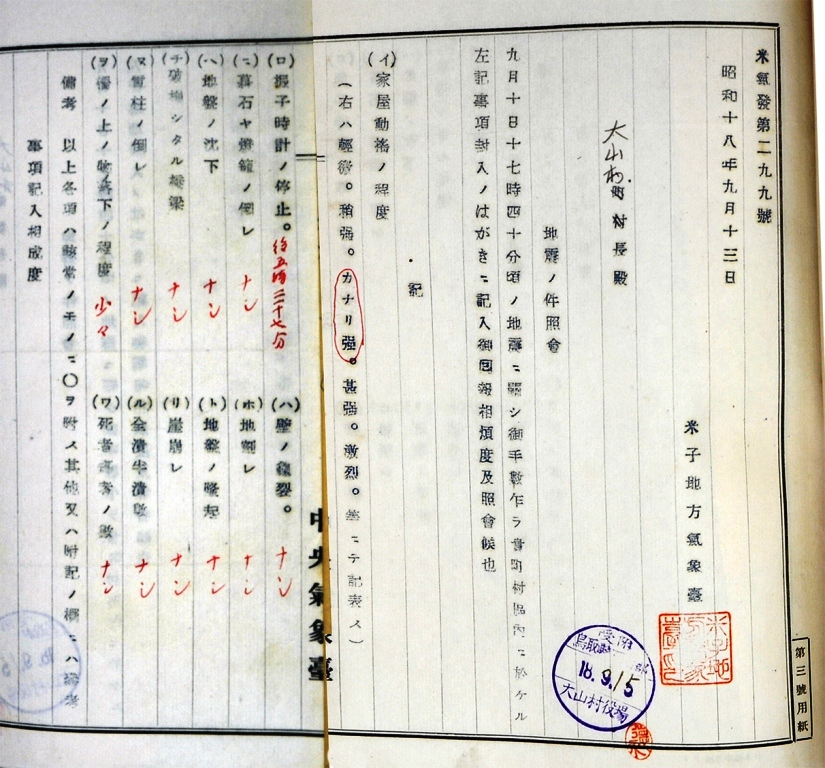 米氣發第二九九號
昭和十八年九月十三日
米子地方氣象臺
大山村町村長殿
地震ノ件照會
九月十日十七時四十分頃ノ地震ニ關シ御手數乍ラ貴町村區內ニ於ケル
左記事項封入ノはがきニ記入御囘報相煩度及照會候也
記
(イ)家屋動搖ノ程度
(右ハ輕微。稍强。カナリ强。甚强。激烈。等ニテ記表ス)
中央氣象臺
(ロ)振子時計ノ停止。 後五時三十七分
(ハ)壁ノ龜裂。 ナシ
(ニ)墓石ヤ燈籠ノ倒レ ナシ
(ホ)地割レ ナシ
(ヘ)地盤ノ沈下 ナシ
(ト)地盤ノ隆起 ナシ
(チ)破壞シタル橋梁 ナシ
(リ)崖崩レ ナシ
(ヌ)電柱ノ倒レ ナシ
(ル)全潰半潰數 ナシ
(ヲ)棚ノ上ノ物落下ノ程度 少々
(ワ)死者傷者ノ數 ナシ
備考 以上各項ハ該當ノモノニ〇ヲ附ス其他又ハ附記ノ欄ニハ參考
事項記入相成度
受附
18.9.15
大山村役場
第三號用紙